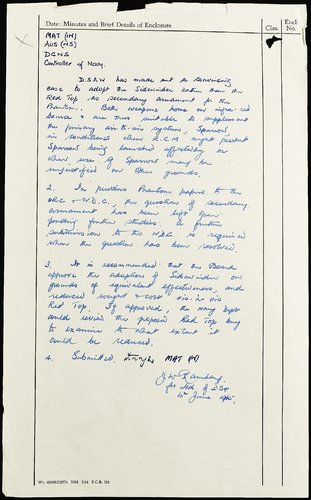 Date: Minutes and Brief Details of Enclosure
Clas.
Encl. No.
MAT (N)
AUS (NS)
DCNS
Controller of Navy.
D.S.A.W has made out a convincing
case to adopt the Sidewinder rather than the
Red Top as secondary armament for the
Phantom. Both weapons home on infra-red
source & are thus suitable to supplement
the primary air-to-air system, Sparrow,
in conditions when E.C.M. might prevent
Sparrow being launched effectively or
when use of Sparrow may be
unjustified on other grounds.
2. In previous Phantom papers to the
ORC & W.D.C., the question of secondary
armament has been left open
pending further studies. A further
submission to the WDC is required
when the question has been resolved.
3. It is recommended that the Board
approve the adoption of Sidewinder on
grounds of equivalent effectiveness, and
reduced weight & cost vis-a-vis
Red Top. If approved, the Navy Dept
could review the proposed Red Top buy
to examine to what extent it
could be reduced.
4. Submitted, through MAT (N)
for Hd of DS4
June 1965.